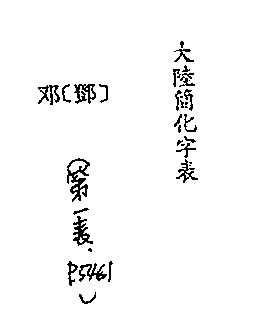 大陸簡化字表
邓〔鄧〕
(第一表、P5461)